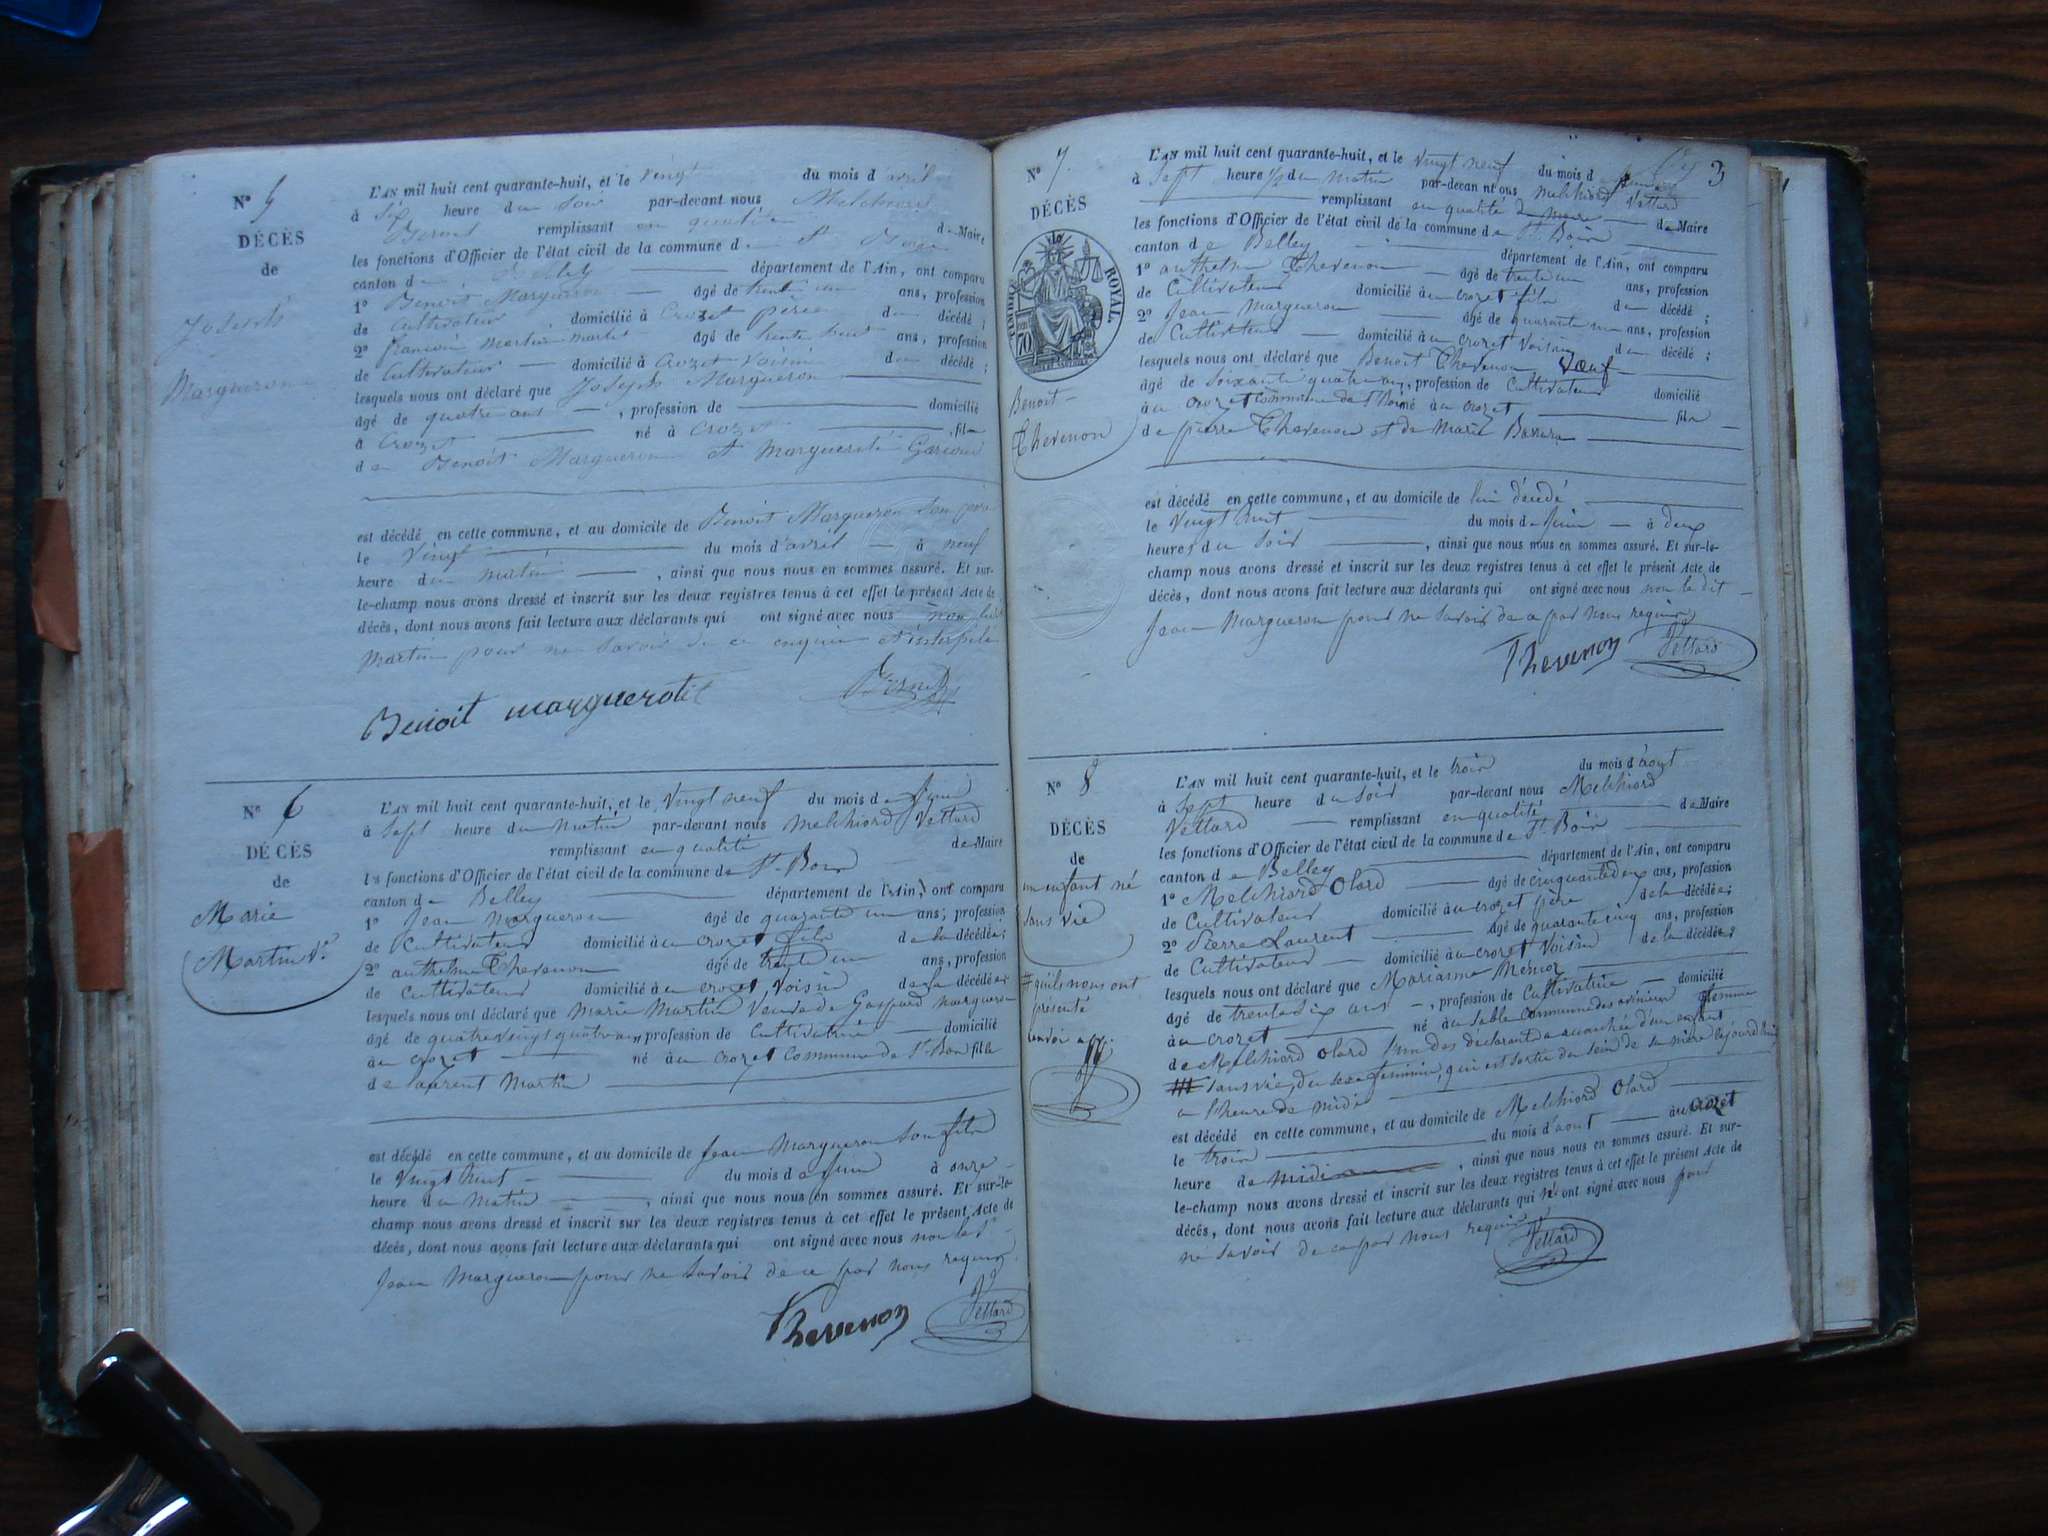 N° 5
DÉCÈS
de
Joseph
Margueron
L'AN mil huit cent quarante-huit, et le vingt du mois d avril
à six heure du soir par-devant nous Melchiord
remplissant en qualité de Maire
les fonctions d'Officier de l'état civil de la commune de St
canton de Belley département de l'Ain, ont comparu
1° Benoit Margueron âgé de trente un ans, profession
de cultivateur domicilié à Crozet père du décédé ;
2° françois Martin âgé de trente huit ans, profession
de Cultivateur domicilié à Crozet voisin du décédé ;
lesquels nous ont déclaré que Joseph Margueron
âgé de quatre ans , profession de domicilié
à Crozet né à Crozet , fils
de Benoit Margueron et Marguerite
est décédé en cette commune, et au domicile de Benoit Margueron son père
le vingt du mois d'avril à neuf
heure du matin , ainsi que nous nous en sommes assuré. Et sur-
le-champ nous avons dressé et inscrit sur les deux registres tenus à cet effet le présent Acte de
décès, dont nous avons fait lecture aux déclarants qui ont signé avec nous non
Martin pour ne savoir de ce enquis et interpelé
Benoit
N° 6
DÉCÈS
de
Marie
Martin Ve
L'AN mil huit cent quarante-huit, et le vingt neuf du mois de Juin
à Sept heure du Matin par-devant nous Melchiord Vettard
remplissant en qualité de Maire
les fonctions d'Officier de l'état civil de la commune de St Bois
canton de Belley département de l'Ain, ont comparu
1° Jean Margueron âgé de quarante un ans; profession
de Cultivateur domicilié à au crozet fils de la décédée;
2° anthelme Thevenon âgé de trente un ans, profession
de Cultivateur domicilié à au crozet voisin de la décédée;
lesquels nous ont déclaré que Marie Martin Veuve de Gaspard Margueron
âgé de quatre vingt quatre ans, profession de Cultivatrice domicilié
à au crozet né à au crozet commune de St Bois fille
de Laurent Martin
est décédé en cette commune, et au domicile de Jean Margueron son fils
le vingt huit du mois de Juin à onze
heure du Matin , ainsi que nous nous en sommes assuré. Et sur-le-
champ nous avons dressé et inscrit sur les deux registres tenus à cet effet le présent Acte de
décès, dont nous avons fait lecture aux déclarants qui ont signé avec nous non led
Jean Margueron pour ne savoir de ce par nous requis
Thevenon Vettard
N° 7.
DÉCÈS
TIMBRE ROYAL
70
Benoit
Thevenon
3
L'AN mil huit cent quarante-huit, et le vingt neuf du mois d
à Sept heure 1/2 du matin par-devant nous Melchiord Vettard
remplissant en qualité de maire de Maire
les fonctions d'Officier de l'état civil de la commune de St Bois
canton de Belley département de l'Ain, ont comparu
1° anthelme Thevenon âgé de trente un ans, profession
de Cultivateur domicilié à au crozet fils du décédé ;
2° Jean Margueron âgé de quarante un ans, profession
de Cultivateur domicilié à au crozet voisin du décédé ;
lesquels nous ont déclaré que Benoit Thevenon Vœuf
âgé de soixante quatre ans, profession de Cultivateur domicilié
à au crozet commune de St Bois né à au crozet fils
de pierre Thevenon et de Marie
est décédé en cette commune, et au domicile de lui décédé
le vingt huit du mois de Juin à deux
heures du soir , ainsi que nous nous en sommes assuré. Et sur-le-
champ nous avons dressé et inscrit sur les deux registres tenus à cet effet le présent Acte de
décès, dont nous avons fait lecture aux déclarants qui ont signé avec nous non le dit
Jean Margueron pour ne savoir de ce par nous requis
Thevenon Vettard
N° 8
DÉCÈS
de
un enfant né
sans vie
# qu'ils nous ont
présenté
L'AN mil huit cent quarante-huit, et le trois du mois d'aout
à Sept heure du soir par-devant nous Melchiord
Vettard remplissant en qualité de Maire
les fonctions d'Officier de l'état civil de la commune de St Bois
canton de Belley département de l'Ain, ont comparu
1° Melchiord Olard âgé de cinquante deux ans, profession
de Cultivateur domicilié à au crozet père de la décédée;
2° Pierre Laurent âgé de quarante cinq ans, profession
de Cultivateur domicilié à au crozet voisin de la décédée;
lesquels nous ont déclaré que Marianne
âgé de trente six ans , profession de Cultivatrice domicilié
à au crozet né au sable commune femme
de Melchiord Olard l'un des déclarants a accouchée d'un enfant
# sans vie, du sexe feminin, qui est sortie du sein de sa mère aujourd'hui
a l'heure de midi
est décédé en cette commune, et au domicile de Melchiord Olard
le trois du mois d'aout à au crozet
heure de midi , ainsi que nous nous en sommes assuré. Et sur-
le-champ nous avons dressé et inscrit sur les deux registres tenus à cet effet le présent Acte de
décès, dont nous avons fait lecture aux déclarants qui n' ont signé avec nous pour
ne savoir de ce par nous requis
Vettard